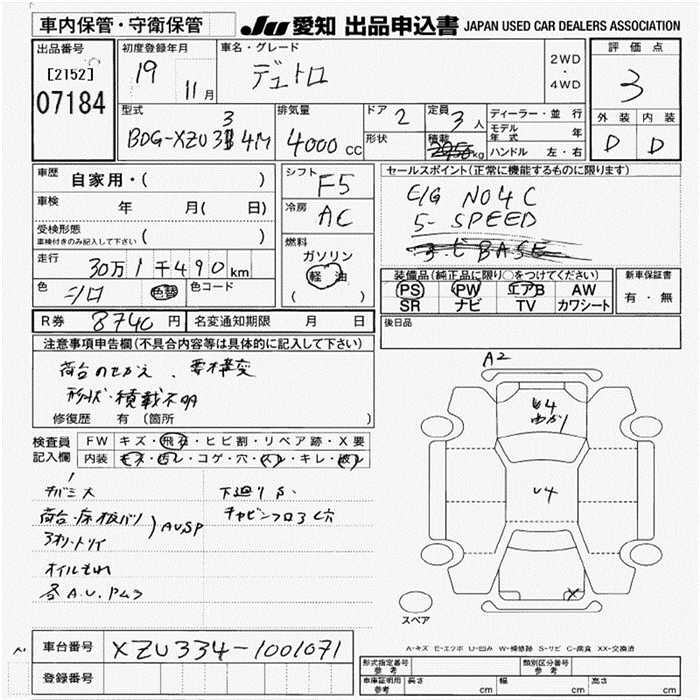 車内保管・守衛保管
JU 愛知 出品申込書 JAPAN USED CAR DEALERS ASSOCIATION
出品番号
[2152]
07184
初度登録年月
19 11月
車名・グレード
デュトロ
2WD
・
4WD
評価点
3
外装 内装
D D
型式
BDG-XZU334M
排気量
4000 CC
ドア 2
形状
定員 3人
積載 kg
ディーラー・並行
モデル年式 年
ハンドル 左・右
車歴
自家用・( )
車検
年 月( 日)
受検形態
車検付きのみ記入して下さい ( )
走行
30万1千490km
色 シロ 色替
色コード
シフト F5
冷房 AC
燃料
ガソリン
軽油
( )
セールスポイント(正常に機能するものに限ります)
E/G NO4C
5-SPEED
装備品(純正品に限り○をつけてください)
PS PW エアB AW
SR ナビ TV カワシート
新車保証書
有・無
後日品
R券 8740円
名変通知期限 月 日
注意事項申告欄(不具合内容等は具体的に記入して下さい)
荷台のせかえ、要構変
形状・積載不明
修復歴 有 (箇所 )
検査員記入欄
FW キズ・飛石・ヒビ割・リペア跡・X要
内装 キズ・汚レ・コゲ・穴・スレ・キレ・破レ
荷台・床板バツ
AUSP
オイルもれ
下廻りS・
A2
U4
U4
X
スペア
A-キズ E-エクボ U-凹み W-補修跡 S-サビ C-腐食 XX-交換済
車台番号 XZU334-1001071
登録番号
形式指定番号 参考
類別区分番号 参考
車庫証明用 参考 長さ cm 幅 cm 高さ cm